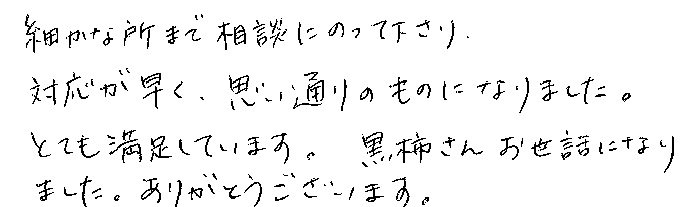 細かな所まで相談にのって下さり、
対応が早く、思い通りのものになりました。
とても満足しています。 黒柿さんお世話になり
ました。ありがとうございます。